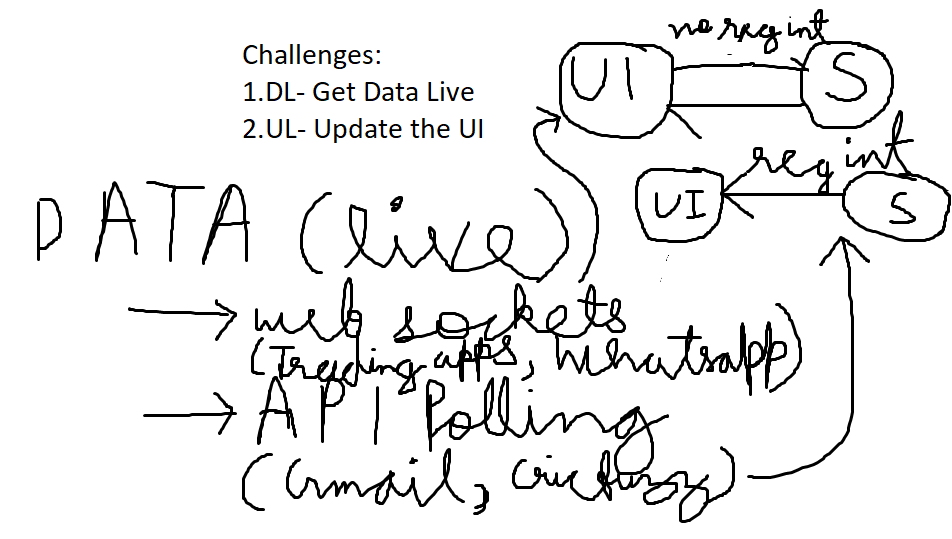 Challenges:
1.DL- Get Data Live
2.UL- Update the UI
no reg int
UI S
reg int
UI S
DATA (live)
→ web sockets
(Trading apps, Whatsapp)
→ API Polling
(Gmail, cricbuzz)